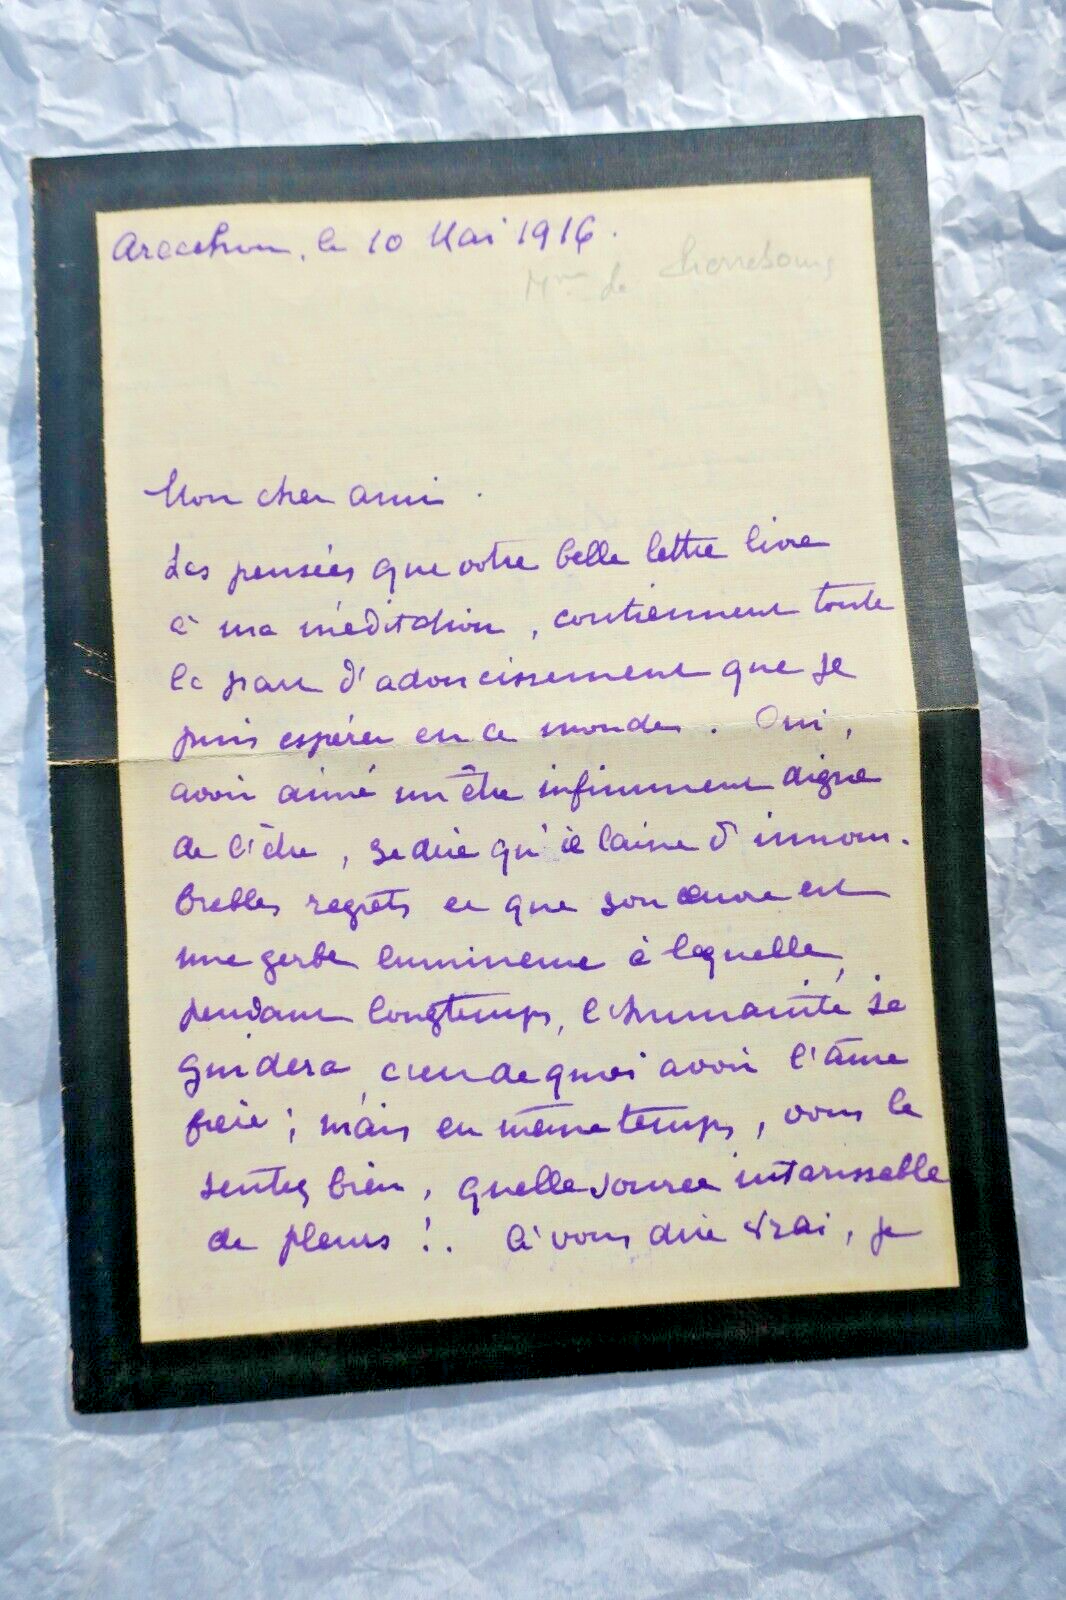 Arcachon, le 10 Mai 1916.
Mme de
Mon cher ami.
Les pensées que votre belle lettre livre
à ma méditation, contiennent toute
la part d'adoucissement que je
puis espérer en ce monde. Oui,
avoir aimé un être infiniment digne
de l'être, se dire qu'il laisse d'innom-
brables regrets et que son œuvre est
une gerbe lumineuse à laquelle,
pendant longtemps, l'humanité se
guidera c'est de quoi avoir l'âme
fière; mais en même temps, vous le
sentez bien, quelle source intarissable
de pleurs!. A vous dire vrai, je